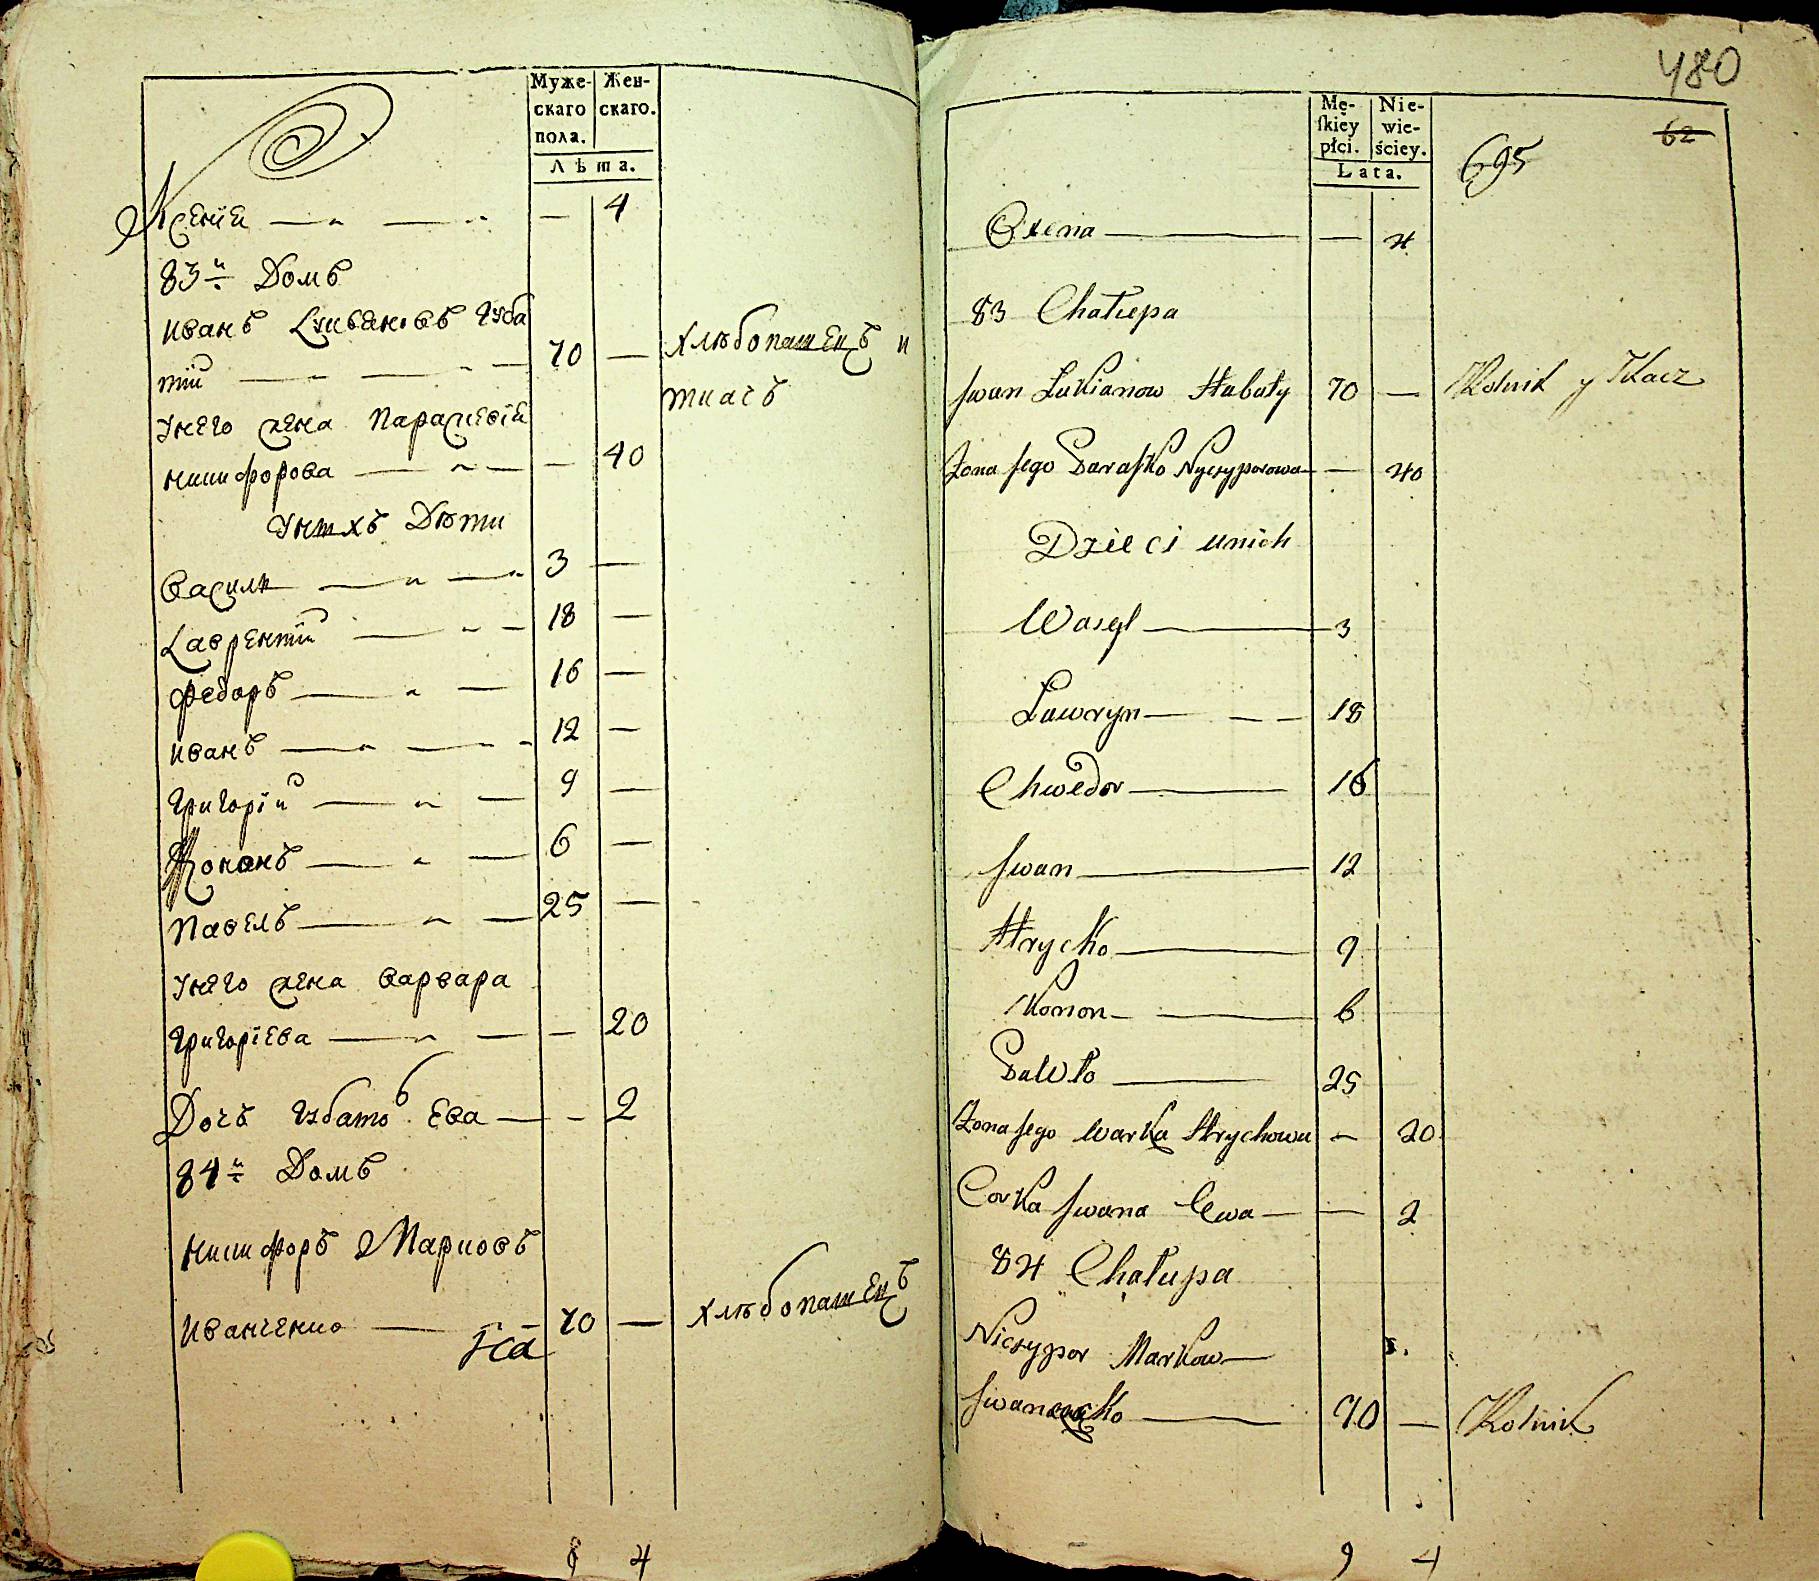 Муже-
скаго
пола.
Жен-
скаго.
Лѣта.
Ксенїя — — — 4
83й Домъ
Иванъ Лукьяновъ Губа
тїй — — — 70 — Хлѣбопашецъ и
ткачъ
Унего жена Параскевїя
Никифорова — — — 40
Унихъ Дѣти
Василь — — 3 —
Лаврентїй — — 18 —
Федоръ — — 16 —
Иванъ — — 12 —
Григорїй — — 9 —
Кононъ — — 6 —
Павелъ — — 25 —
Унего жена Варвара
Григорїева — — — 20
Дочь Губатовъ Ева — — 2
84й Домъ
Никифоръ Марковъ
Иванченко — — 70 — Хлѣбопашецъ
480
62
695
Mę-
skiey
płci.
Nie-
wie-
ściey.
Lata.
Oxena — — 4
83 Chałupa
Jwan Łukianow Hubaty 70 — Rolnik y Tkacz
Zona Jego Parasko Nyczyporowa — 40
Dzieci unich
Wasyl — 3
Ławryn — — — 18
Chwedor — 16
Jwan — 12
Hrycko — 9
Konon — — 6
Pawło — 25
Zona Jego Warka Hrychowa — 20
Corka Jwana Ewa — — 2
84 Chałupa
Niczypor Markow —
70 — Rolnik
4
9 4